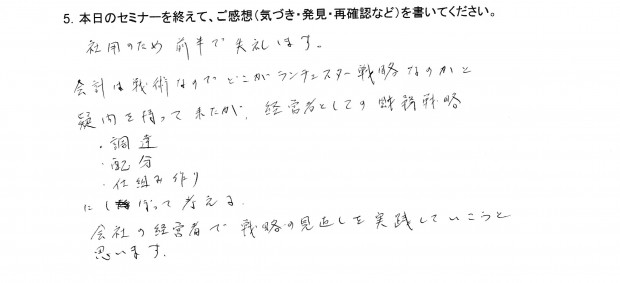 5. 本日のセミナーを終えて、ご感想（気づき・発見・再確認など）を書いてください。
社用のため 前半で失礼します。
会計は戦術なのでどこがランチェスター戦略なのかと
疑問を持って来たが、経営者としての財務戦略
・調達
・配分
・仕組み作り
にしぼって考える。
会社の経営者で戦略の見直しを実践していこうと
思います。